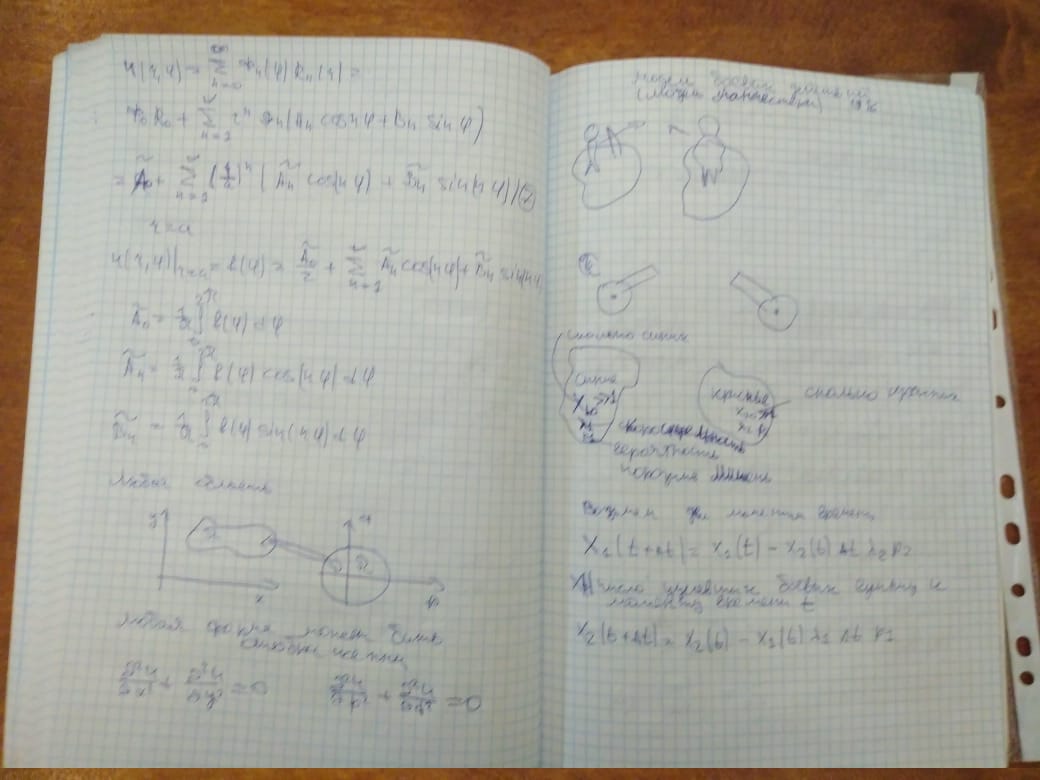 u(r,φ) = ∑_{n=0}^{∞} Φ_n(φ) R_n(r) =
Φ₀R₀ + ∑_{n=1}^{∞} r^n (A_n cos nφ + B_n sin φ)
= Ã₀ + ∑_{n=1}^{∞} (r/a)^n (Ã_n cos(nφ) + B̃_n sin(nφ)) (7)
r=a
u(r,φ)|_{r=a} = f(φ) = Ã₀/2 + ∑_{n=1}^{∞} Ã_n cos(nφ) + B̃_n sin(nφ)
Ã₀ = 1/π ∫₀^{2π} f(φ) dφ
Ã_n = 1/π ∫₀^{2π} f(φ) cos(nφ) dφ
B̃_n = 1/π ∫₀^{2π} f(φ) sin(nφ) dφ
Любая область
y
x
q
p
Любая форма может быть
∂²u/∂x² + ∂²u/∂y² = 0 ∂²u/∂p² + ∂²u/∂q² = 0
Модель боевых действий
(модель Ланчестера)
сколько синих
синие
красные
сколько красных
скорострельность
вероятность
поразить мишень
Возьмем два момента времени
X₁(t+Δt) = X₁(t) − X₂(t) Δt λ₂ P₂
Число уцелевших боевых единиц к
моменту времени t
X₂(t+Δt) = X₂(t) − X₁(t) λ₁ Δt P₁